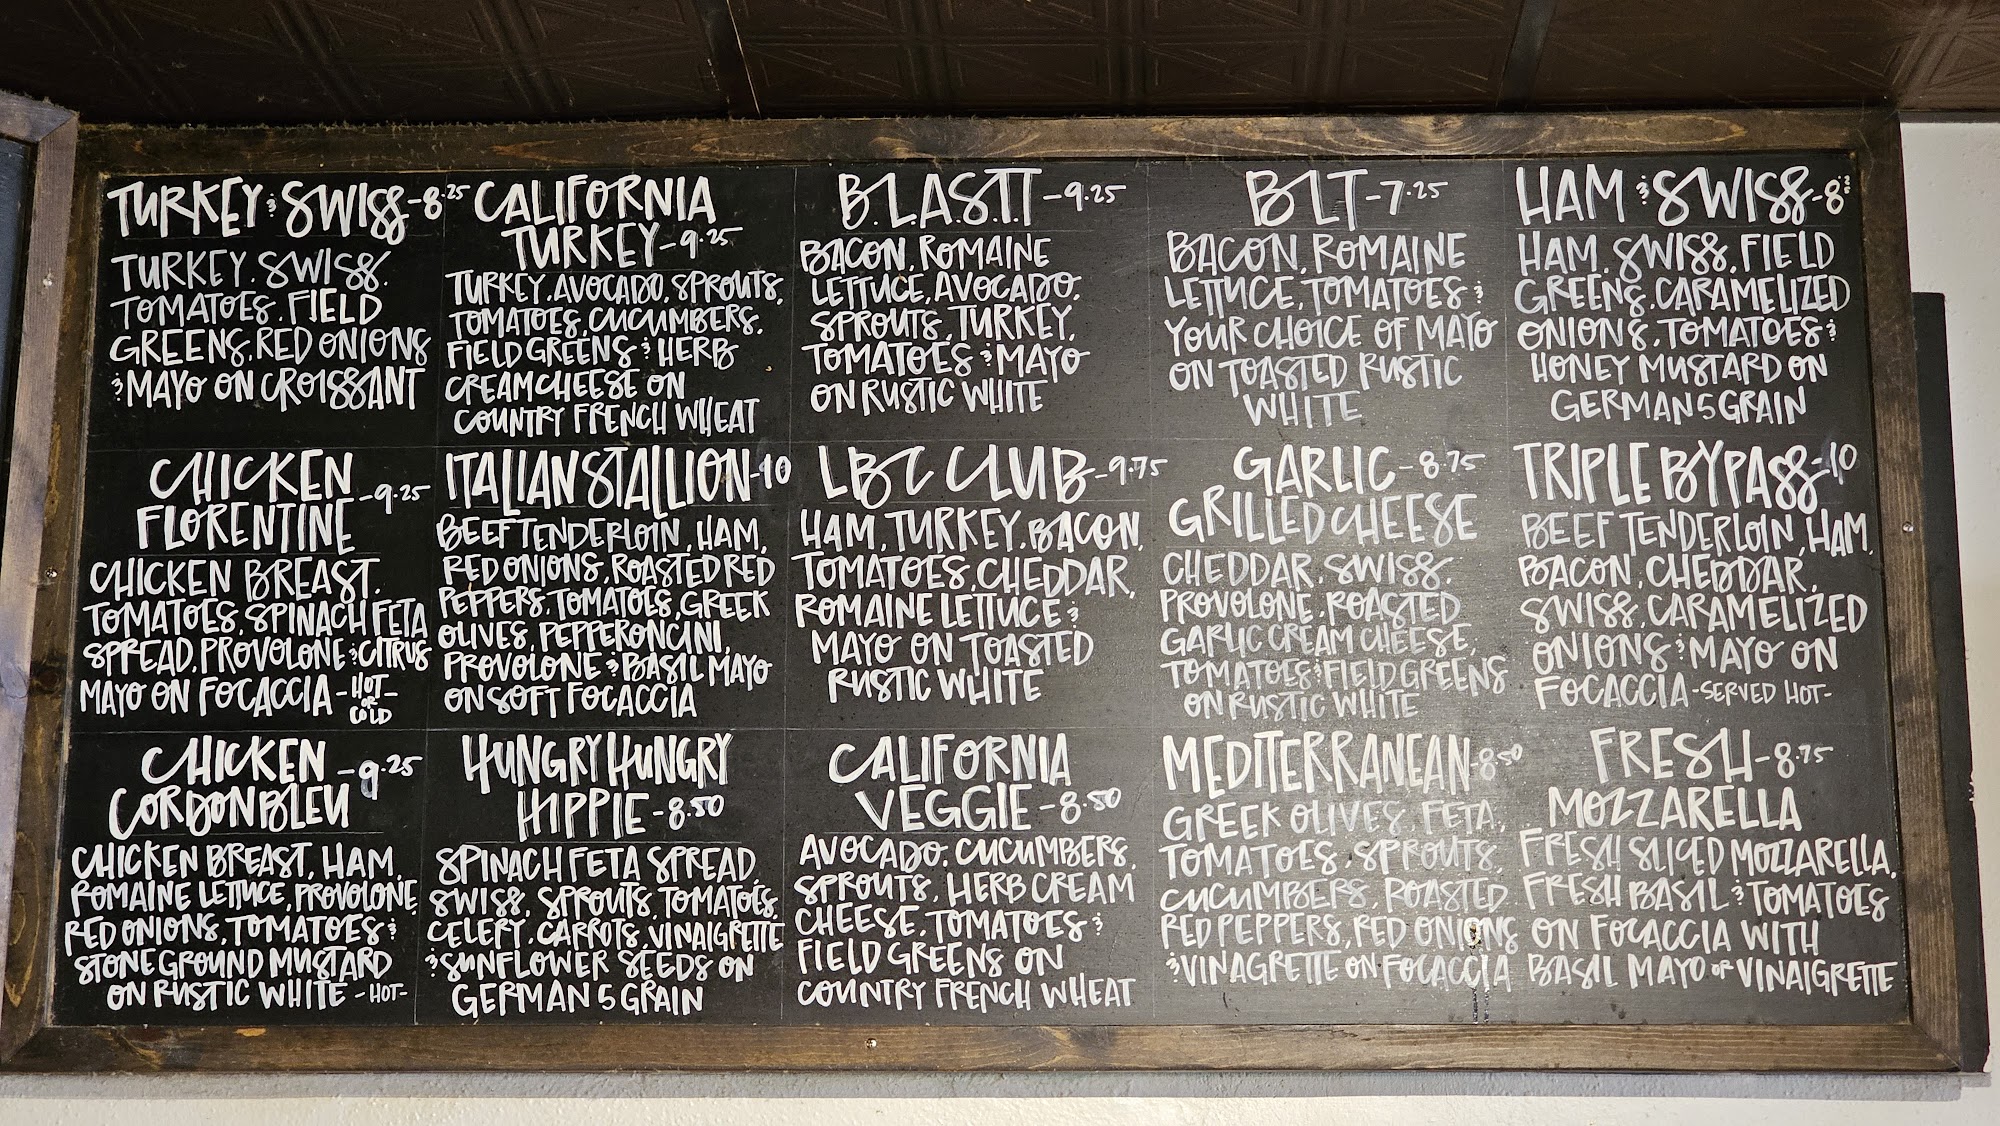 TURKEY & SWISS - 8.25
TURKEY, SWISS,
TOMATOES, FIELD
GREENS, RED ONIONS
& MAYO ON CROISSANT
CALIFORNIA
TURKEY - 9.25
TURKEY, AVOCADO, SPROUTS,
TOMATOES, CUCUMBERS,
FIELD GREENS & HERB
CREAM CHEESE ON
COUNTRY FRENCH WHEAT
B.L.A.S.T.T - 9.25
BACON, ROMAINE
LETTUCE, AVOCADO,
SPROUTS, TURKEY,
TOMATOES & MAYO
ON RUSTIC WHITE
BLT - 7.25
BACON, ROMAINE
LETTUCE, TOMATOES &
YOUR CHOICE OF MAYO
ON TOASTED RUSTIC
WHITE
HAM & SWISS - 8
HAM, SWISS, FIELD
GREENS, CARAMELIZED
ONIONS, TOMATOES &
HONEY MUSTARD ON
GERMAN 5 GRAIN
CHICKEN
FLORENTINE - 9.25
CHICKEN BREAST,
TOMATOES, SPINACH FETA
SPREAD, PROVOLONE & CITRUS
MAYO ON FOCACCIA - HOT -
OR
COLD
ITALIAN STALLION - 10
BEEF TENDERLOIN, HAM,
RED ONIONS, ROASTED RED
PEPPERS, TOMATOES, GREEK
OLIVES, PEPPERONCINI,
PROVOLONE & BASIL MAYO
ON SOFT FOCACCIA
LBC CLUB - 9.75
HAM, TURKEY, BACON,
TOMATOES, CHEDDAR,
ROMAINE LETTUCE &
MAYO ON TOASTED
RUSTIC WHITE
GARLIC - 8.75
GRILLED CHEESE
CHEDDAR, SWISS,
PROVOLONE, ROASTED
GARLIC CREAM CHEESE,
TOMATOES & FIELD GREENS
ON RUSTIC WHITE
TRIPLE BYPASS - 10
BEEF TENDERLOIN, HAM,
BACON, CHEDDAR,
SWISS, CARAMELIZED
ONIONS & MAYO ON
FOCACCIA - SERVED HOT -
CHICKEN - 9.25
CORDON BLEU
CHICKEN BREAST, HAM,
ROMAINE LETTUCE, PROVOLONE,
RED ONIONS, TOMATOES &
STONE GROUND MUSTARD
ON RUSTIC WHITE - HOT -
HUNGRY HUNGRY
HIPPIE - 8.50
SPINACH FETA SPREAD,
SWISS, SPROUTS, TOMATOES,
CELERY, CARROTS, VINAIGRETTE
& SUNFLOWER SEEDS ON
GERMAN 5 GRAIN
CALIFORNIA
VEGGIE - 8.50
AVOCADO, CUCUMBERS,
SPROUTS, HERB CREAM
CHEESE, TOMATOES &
FIELD GREENS ON
COUNTRY FRENCH WHEAT
MEDITERRANEAN - 8.50
GREEK OLIVES, FETA,
TOMATOES, SPROUTS,
CUCUMBERS, ROASTED
RED PEPPERS, RED ONIONS
& VINAGRETTE ON FOCACCIA
FRESH - 8.75
MOZZARELLA
FRESH SLICED MOZZARELLA,
FRESH BASIL & TOMATOES
ON FOCACCIA WITH
BASIL MAYO OR VINAIGRETTE